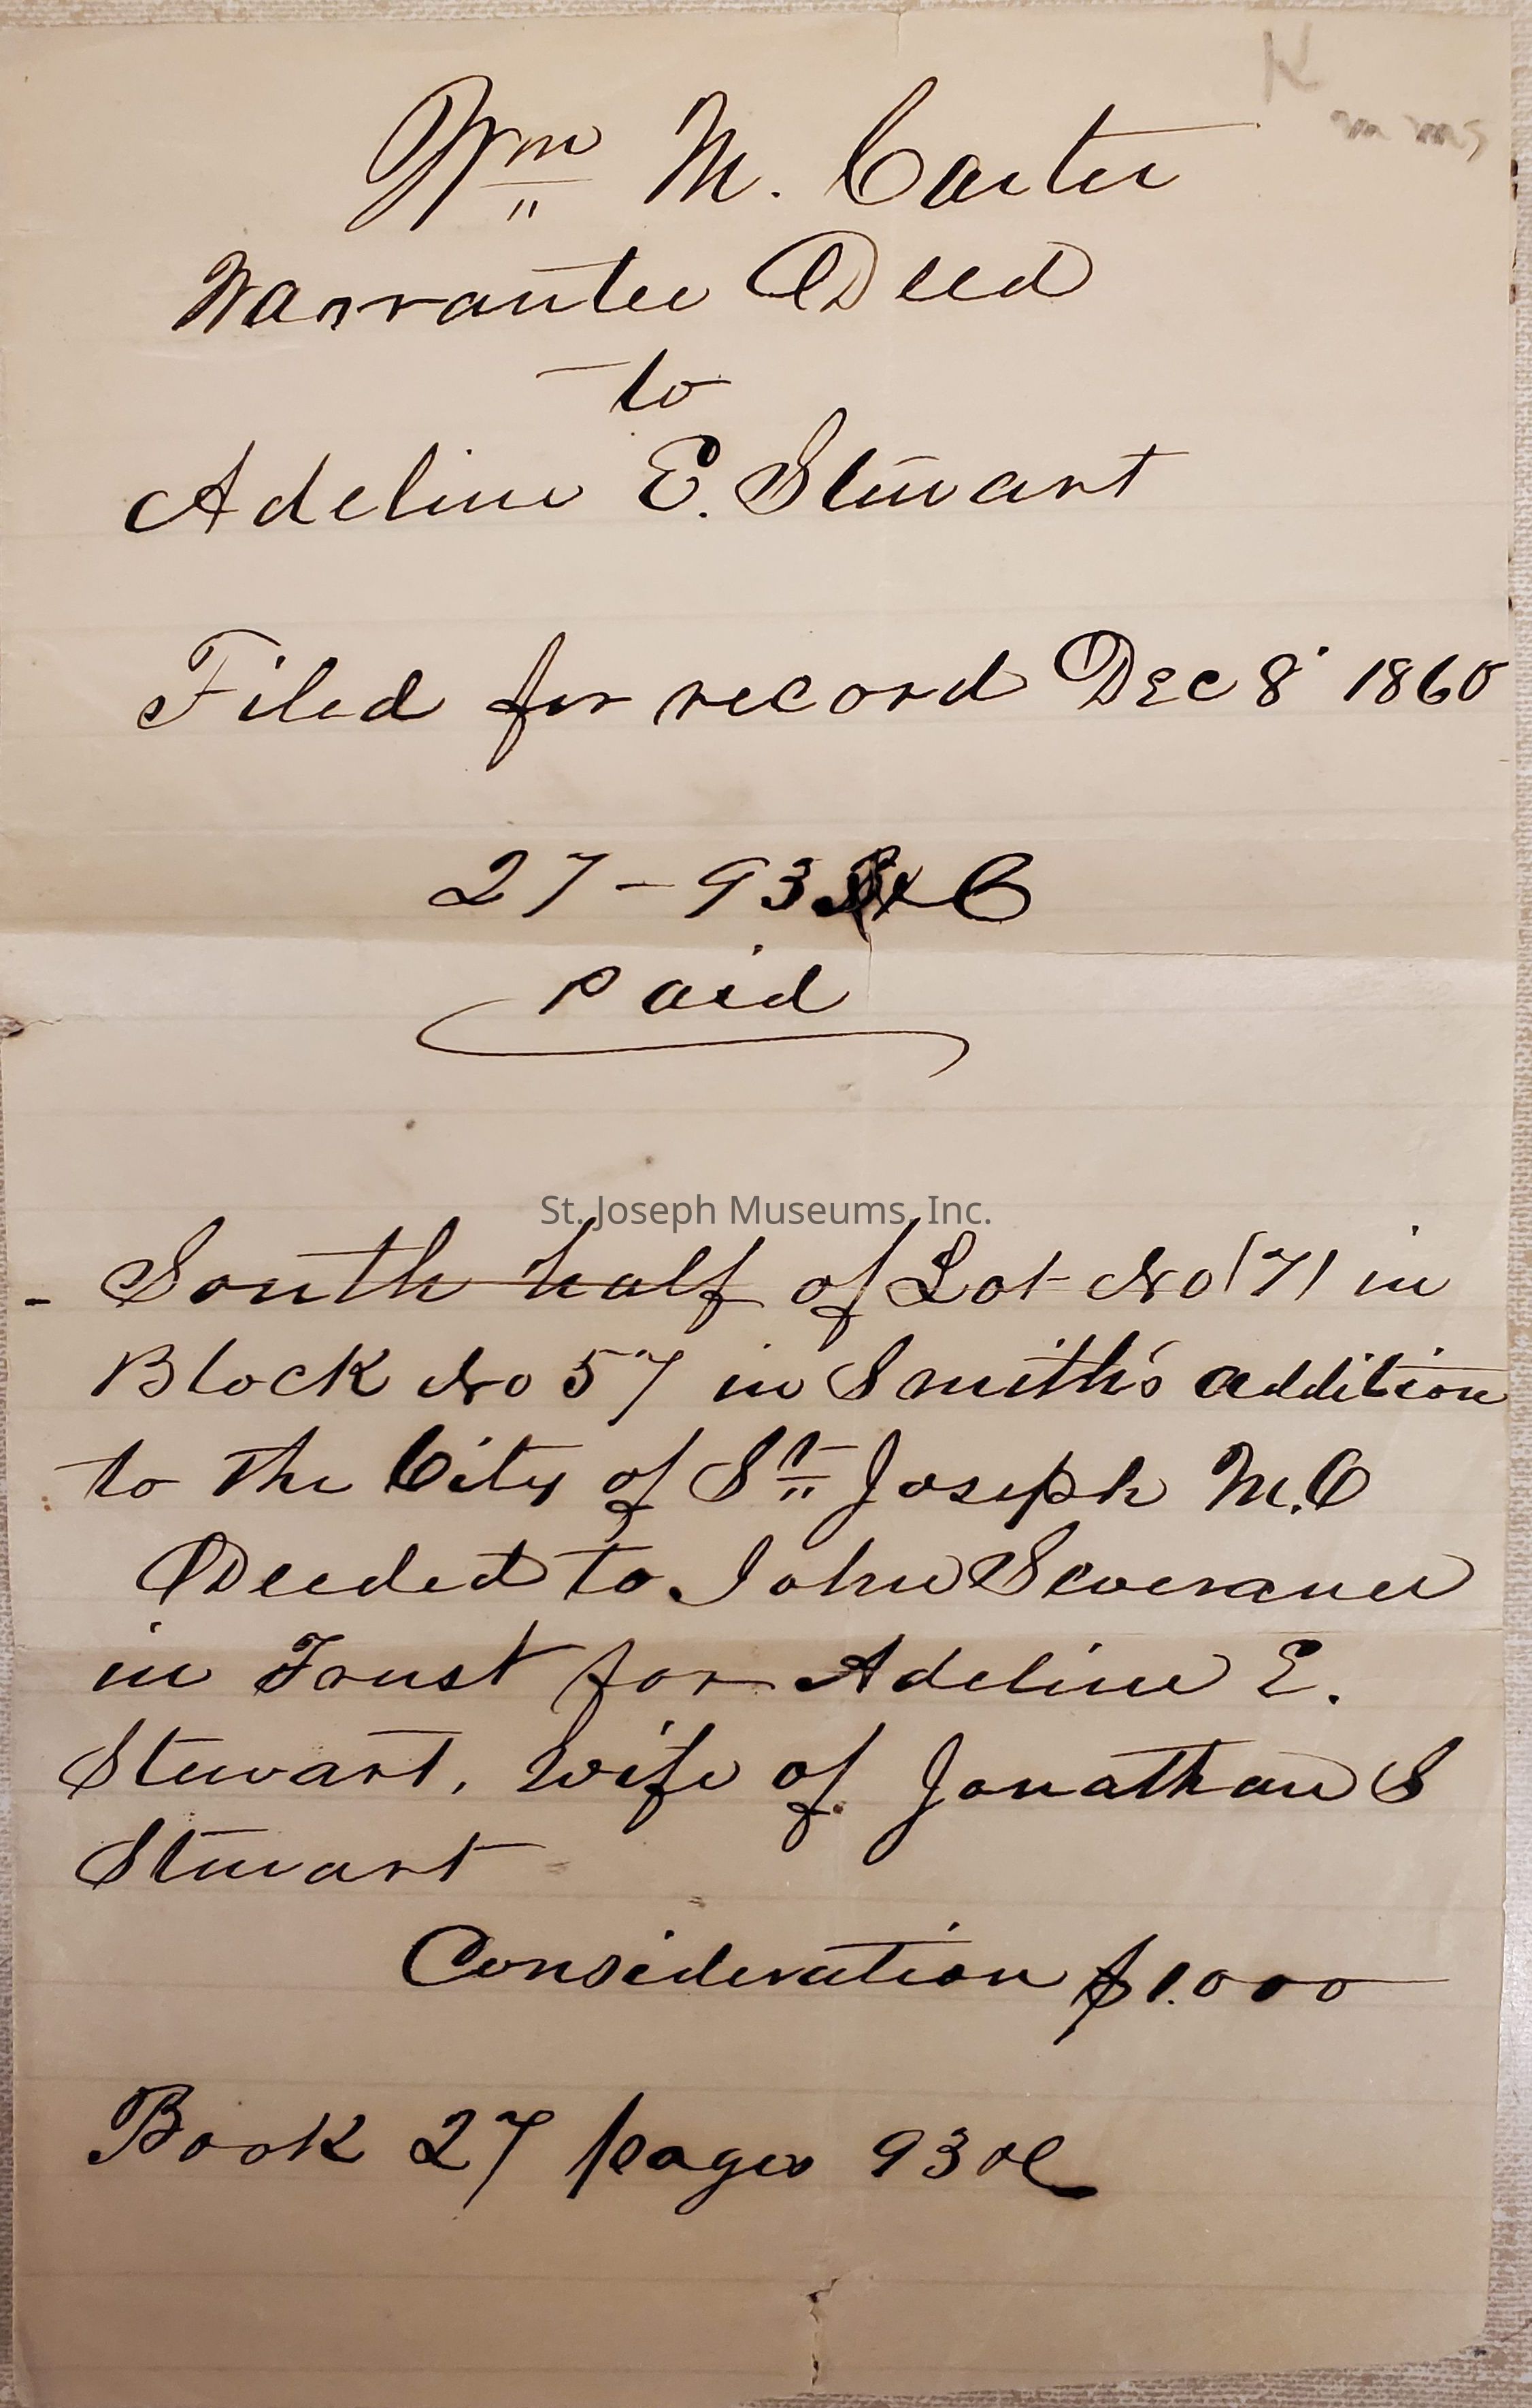 K
Wm M. Carter
Warrantee Deed
to
Adeline E. Stewart
Filed for record Dec 8 1860
27 - 93
Paid
St. Joseph Museums, Inc.
- South half of Lot No (7) in
Block No 57 in Smith's addition
to the City of St Joseph M.O
Deeded to John Severance
in Trust for Adeline E.
Stewart, wife of Jonathan S
Stewart
Consideration $1.000
Book 27 pages 93